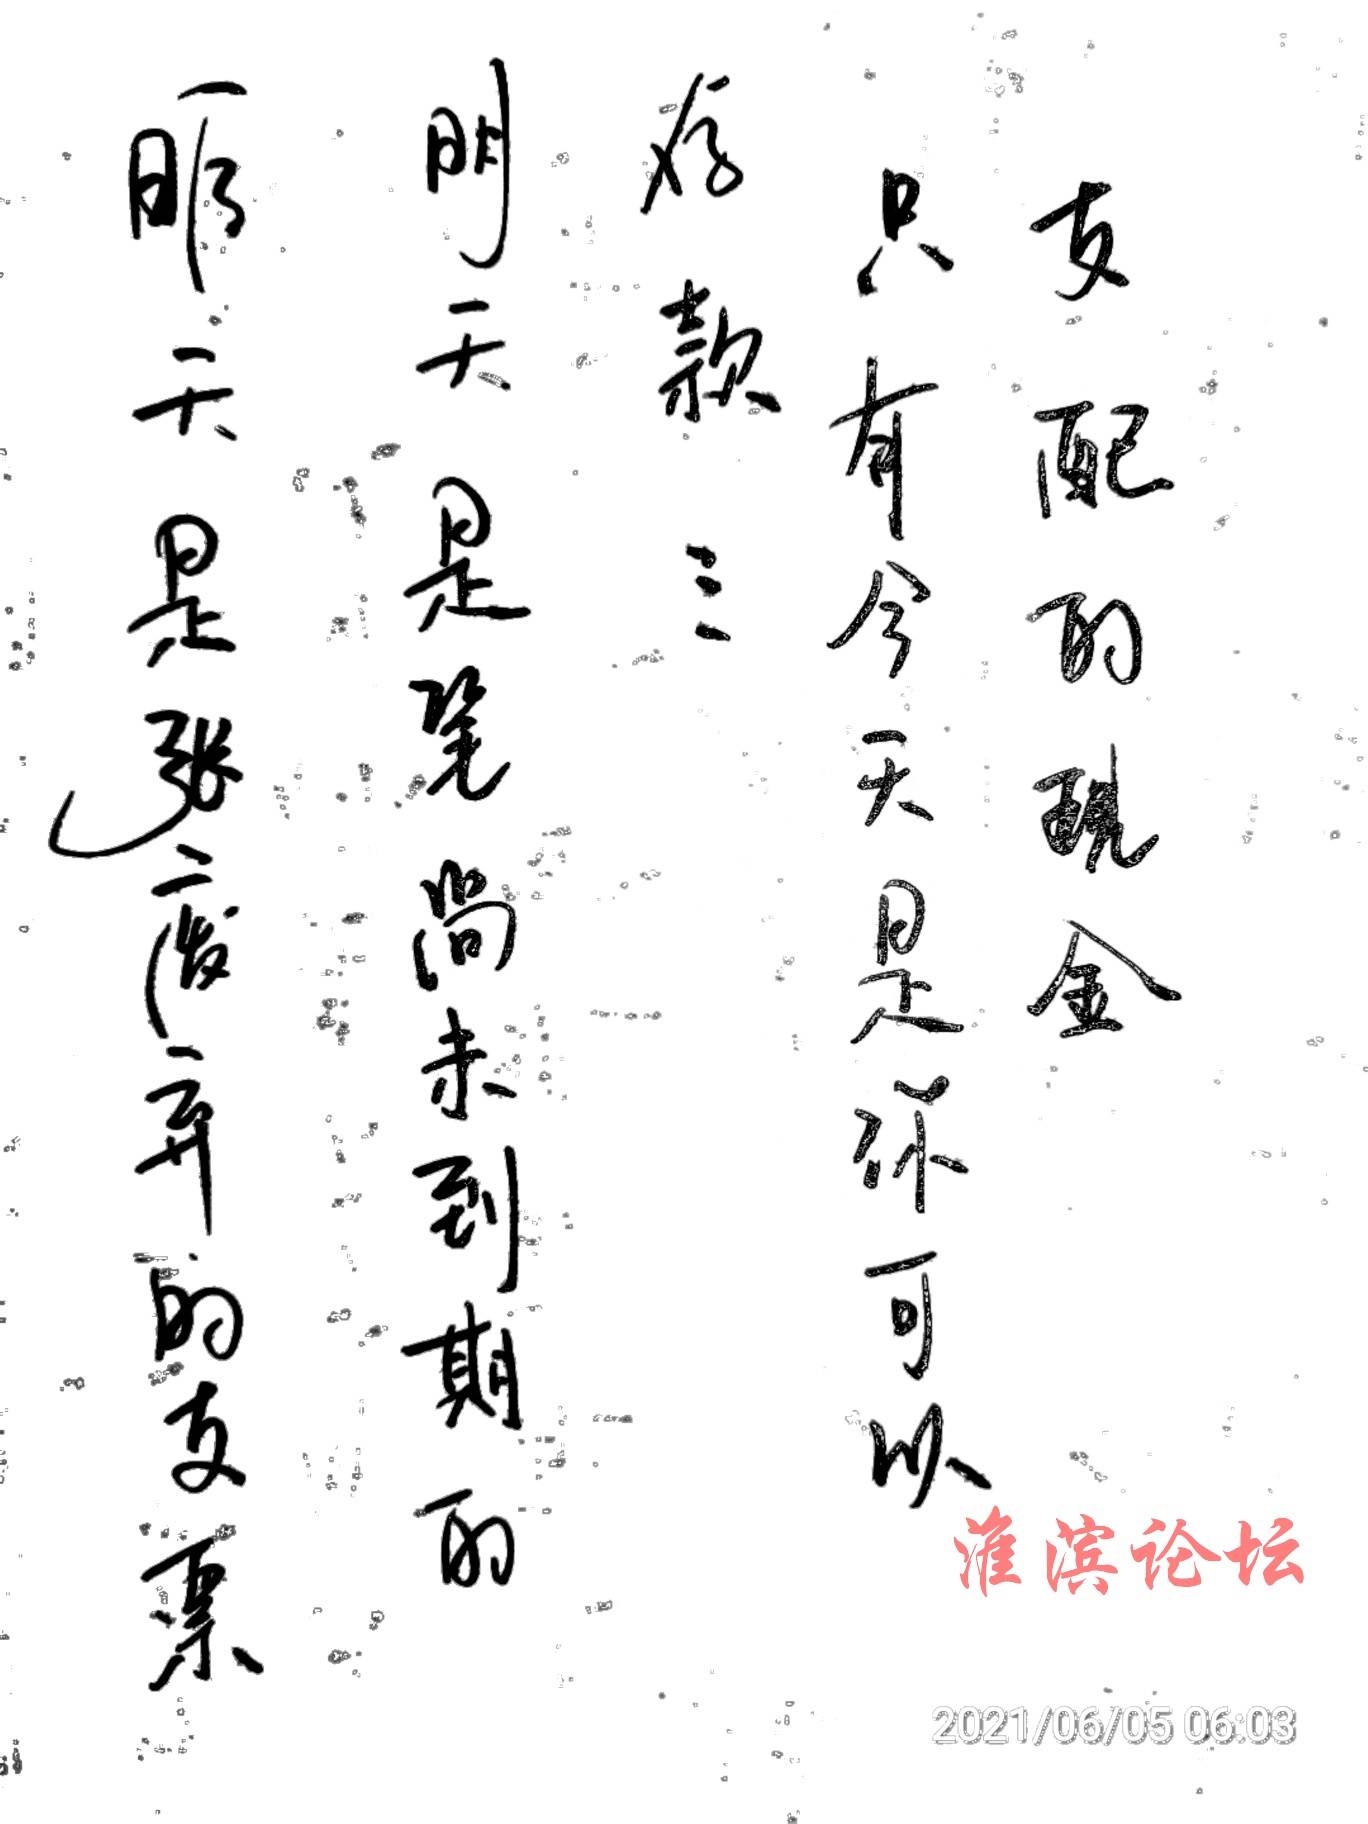 昨天是张废弃的支票
明天是笔尚未到期的
存款
只有今天是你可以
支配的现金
淮滨论坛
2021/06/05 06:03